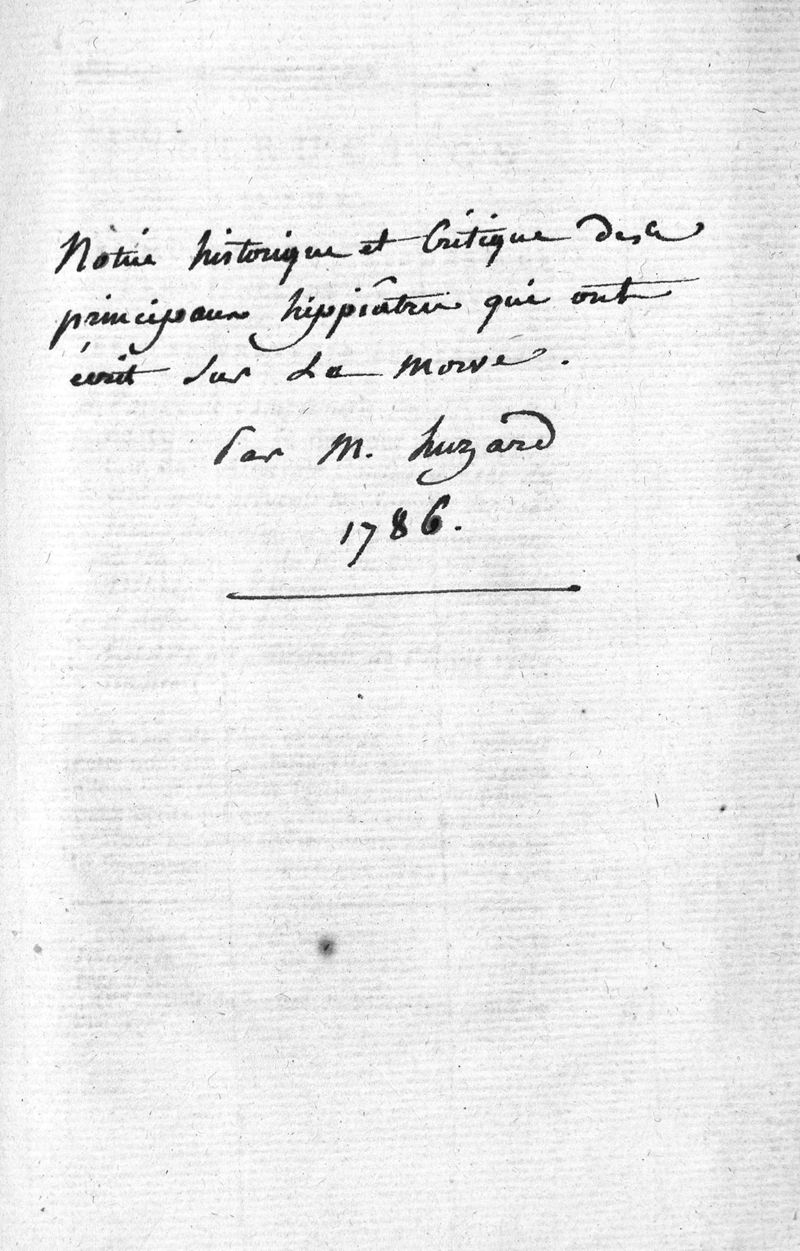 Notice historique et Critique des
principaux hippiâtres qui ont
écrit sur la morve.
Par M. huzard
1786.